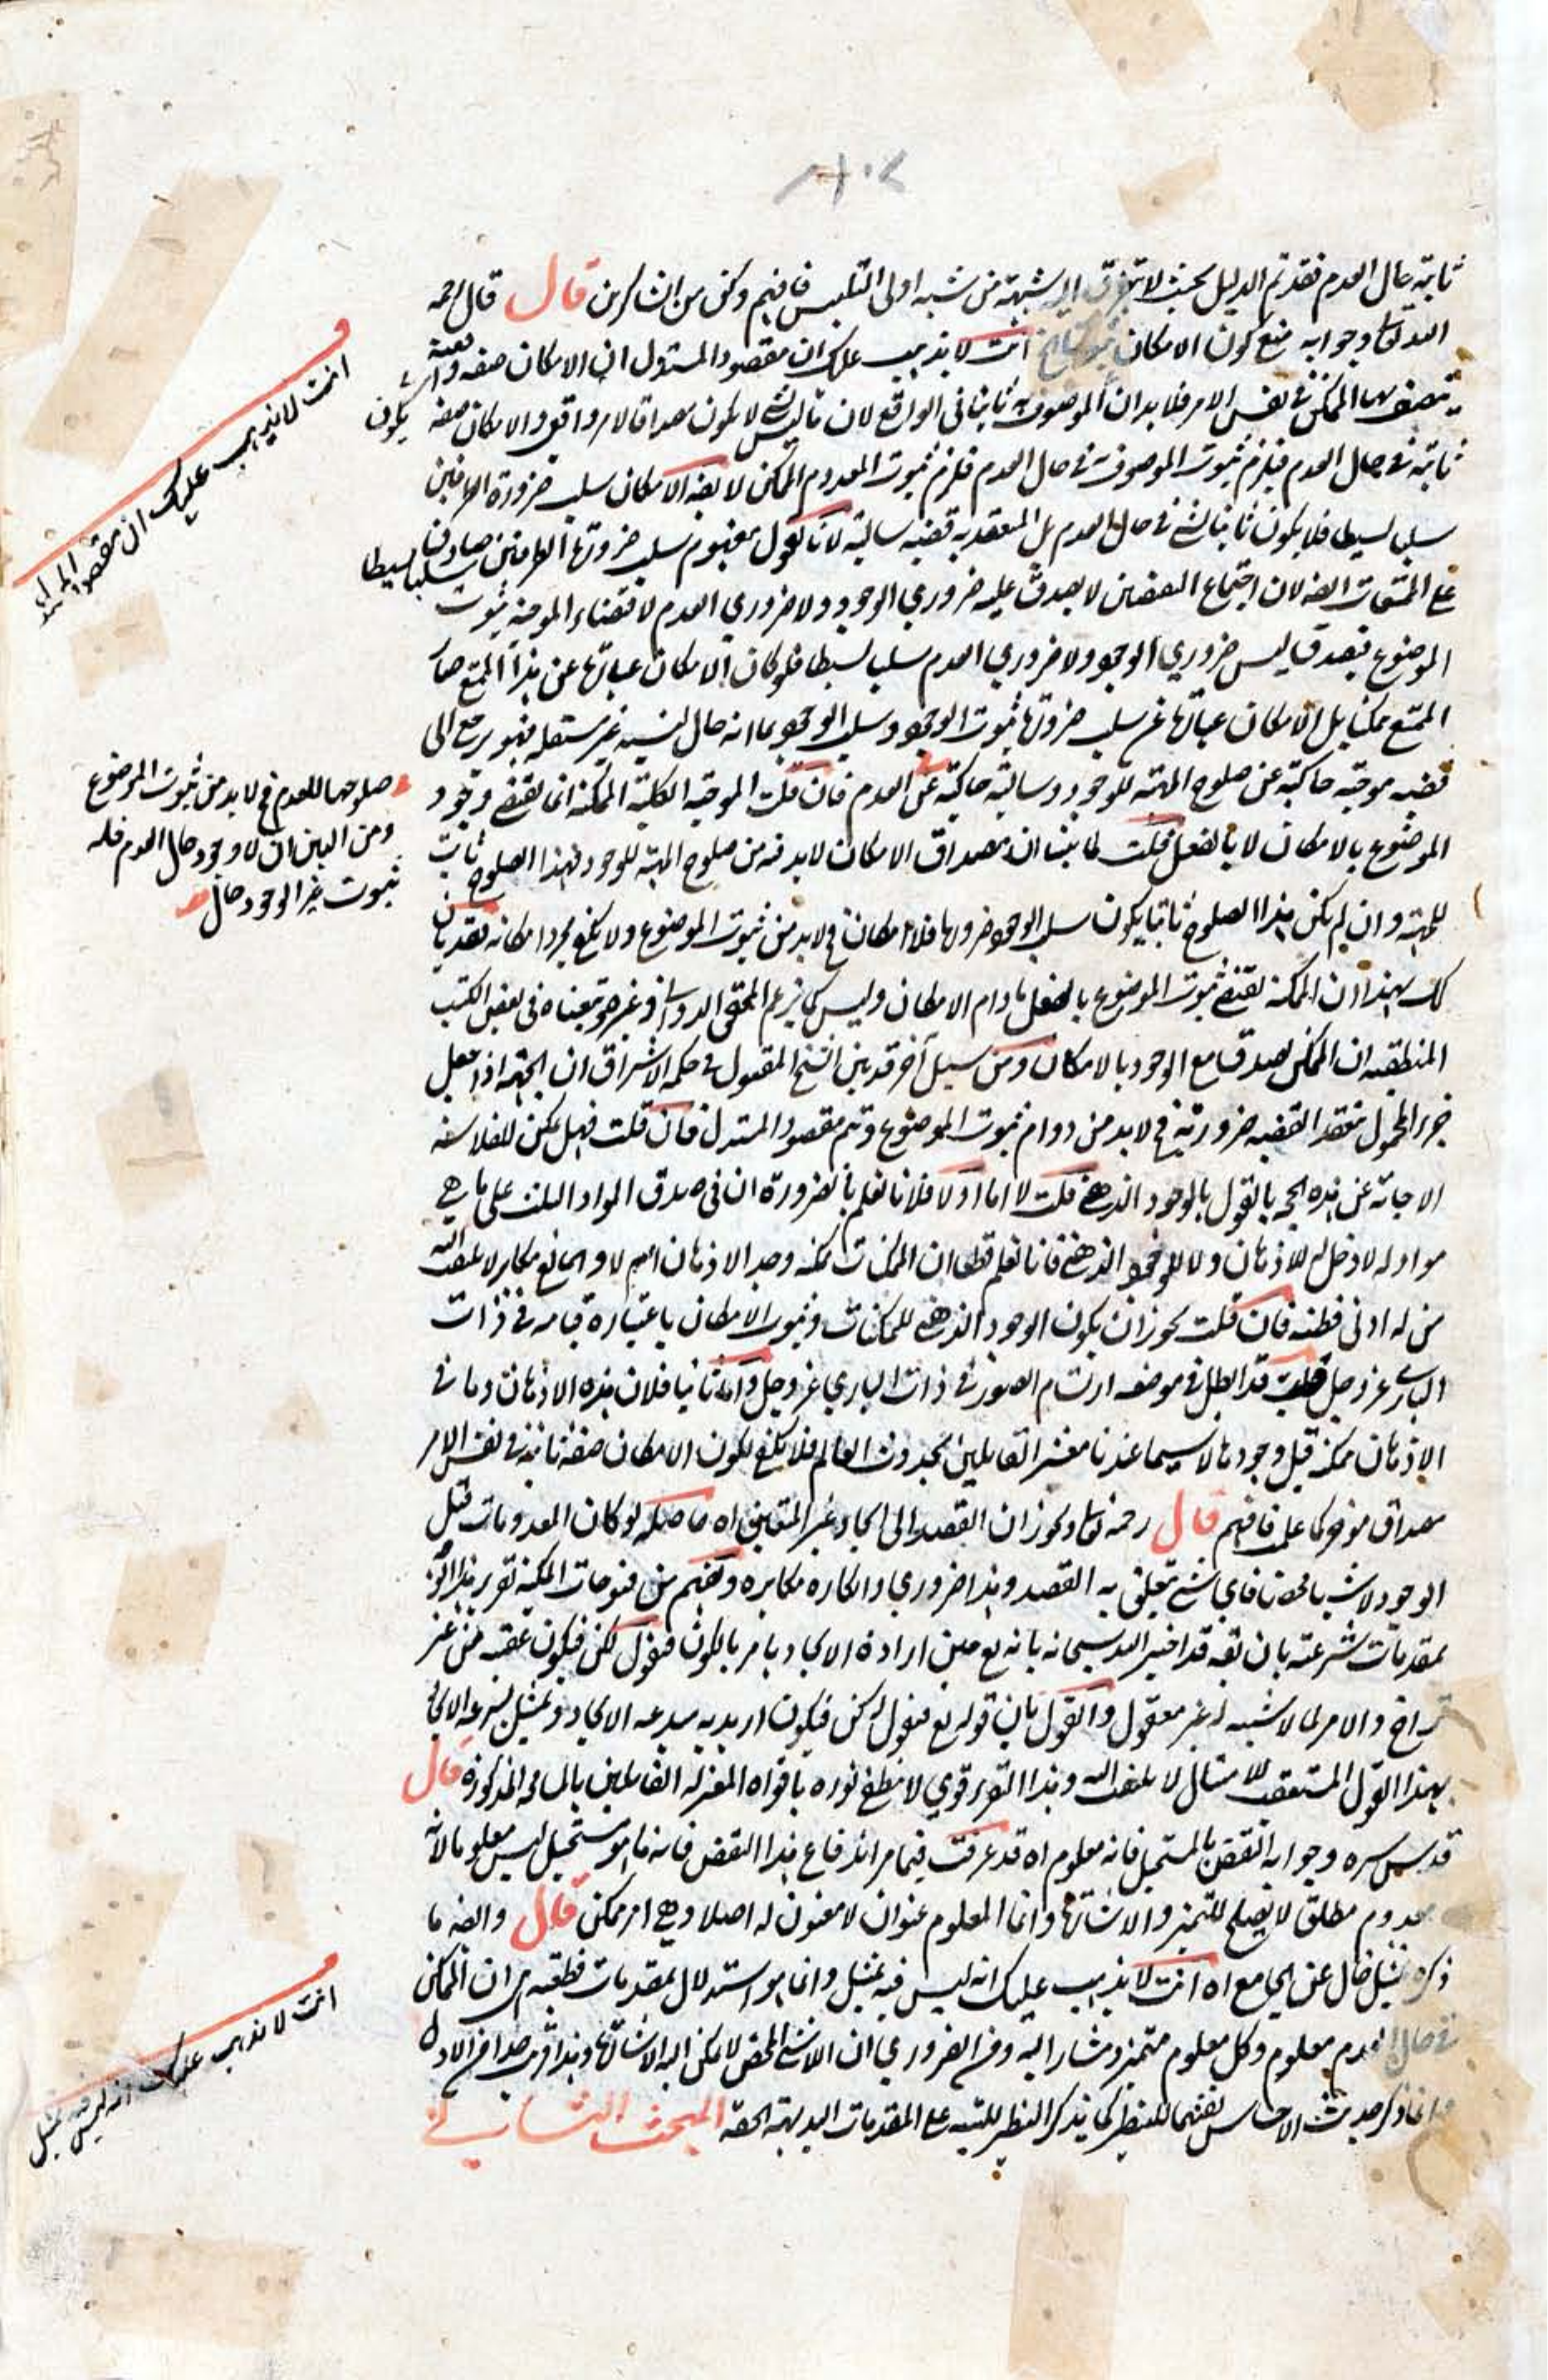 ثابتة حال العدم فقد تم الدليل بحيث لا يتطرق اليه شبهة من شبه اولى التلبيس فافهم وكن من الشاكرين قال قال رحمه
الله تعالى وجوابه منع كون الامكان ثبوتيا اه انت لا يذهب عليك ان مقصود المستدل ان الامكان صفة واقعية
يتصف بها الممكن في نفس الامر فلا بد ان يكون الموصوف به ثابتا في الواقع لان ما ليس بشئ لا يكون مصداقا لامر واقعي والامكان صفة
ثابتة في حال العدم فيلزم ثبوت الموصوف به في حال العدم فلزم ثبوت المعدوم الممكن لا يقال الامكان سلب ضرورة الطرفين
سلبا بسيطا فلا يكون ثابتا لشئ في حال العدم بل المنعقد به قضية سالبة لانا نقول مفهوم سلب ضرورة الطرفين سلبا بسيطا صادق
على الممتنعات ايضا لان اجتماع النقيضين لا يصدق عليه ضروري الوجود ولا ضروري العدم لاقتضاء الموجبة ثبوت
الموضوع فيصدق ليس ضروري الوجود ولا ضروري العدم سلبا بسيطا فلو كان الامكان عبارة عن هذا المنع صار
الممتنع ممكنا بل الامكان عبارة عن سلب ضرورة ثبوت الوجود وسلب الوجود بما انه حال لنسبة غير مستقلة فهو يرجع الى
قضية موجبة حاكية عن صلوح المهية للوجود وسالبة حاكية عن العدم فان قلت الموجبة الكلية الممكنة انما تقتضي وجود
الموضوع بالامكان لا بالفعل قلت لما بينا ان مصداق الامكان لا بد فيه من صلوح المهية للوجود فهذا الصلوح ثابت
للمهية وان لم يكن هذا الصلوح ثابتا يكون سلب الوجود ضروريا فلا امكان فح لا بد من ثبوت الموضوع ولا يكفي مجرد امكانه فقد بان
لك بهذا ان الممكنة تقتضي ثبوت الموضوع بالفعل ما دام الامكان وليس كما يزعم المحقق الدواني وغيره وتبعناه في بعض الكتب
المنطقية ان الممكن يصدق مع الوجود بالامكان ومن سبيل آخر قد بين الشيخ المقتول في حكمة الاشراق ان الجهة اذا جعل
جزء المحمول تنعقد القضية ضرورية فح لا بد من دوام ثبوت الموضوع وتم مقصود المستدل فان قلت فهل يمكن للفلاسفة
الاجابة عن هذه الحجة بالقول بالوجود الذهني قلت لا اما اولا فلانا نعلم بالضرورة ان في صدق المواد الثلث على ما هي
مواد له لا دخل للاذهان ولا للوجود الذهني فانا نعلم قطعا ان الممكنات ممكنة وجد الاذهان ام لا والمانع مكابر لا يلتفت اليه
من له ادنى فطنة فان قلت يجوز ان يكون الوجود الذهني للممكنات وثبوت الامكان باعتبارة قيامه في ذات
الباري عز وجل قلت قد ابطل في موضعه ارتسام الصور في ذات الباري عز وجل واما ثانيا فلان هذه الاذهان وما في
الاذهان ممكنة قبل وجودها لا سيما عندنا معشر القائلين بحدوث العالم فلا يكفي لكون الامكان صفة ثابتة في نفس الامر
مصداق موخر كما علمت فافهم قال رحمه الله تعالى ويجوز ان القصد الى ايجاد غير المتعين اه حاصله لو كان المعدومات قبل
الوجود لا شيئا محضا فاي شئ يتعلق به القصد وهذا ضروري وانكاره مكابرة وتفهم من فتوحات المكية تقرير هذا الدليل
بمقدمات شرعية بان يقال قد اخبر الله سبحانه بانه تع حين ارادة الايجاد يامر بالكون فيقول كن فيكون عقيبه من غير
تراخ والامر لما لا شبيه له غير معقول والقول بان قوله تع فيقول له كن فيكون اريد به سرعة الايجاد وتمثيل لسرعة الايجاد
بهذا القول المستعقب للامتثال لا يلتفت اليه وهذا التقرير قوي لا يطفئ نوره بافواه المعتزلة القائلين بالمعاني المذكورة قال
قدس سره وجوابه النقض بالمستحيل فانه معلوم اه قد عرفت فيما مر اندفاع هذا النقض فانه ما هو مستحيل ليس معلوما لانه
معدوم مطلق لا يصلح للتميز والاشارة وانما المعلوم عنوان لا معنون له اصلا وهي امر ممكن قال وايضا ما
ذكره تمثيل خال عن الجامع اه انت لا يذهب عليك انه ليس فيه تمثيل وانما هو استدلال بمقدمات قطعية هي ان الممكن
في حال العدم معلوم وكل معلوم متميز ومشار اليه ومن الضروري ان اللاشئ المحض لا يمكن اليه الاشارة وهذا قريب جدا من الاول
وانما ذكر حديث الاحساس تفهيما للنظير كما يذكر النظير للتنبيه على المقدمات البديهية الحقة المبحث الثاني في
انت لا يذهب عليك ان مقصود المستدل
صلوحها للعدم فح لا بد من ثبوت الموضوع
ومن البين ان لا وجود حال العدم فله
ثبوت غير الوجود حال
انت لا يذهب عليك انه ليس فيه تمثيل